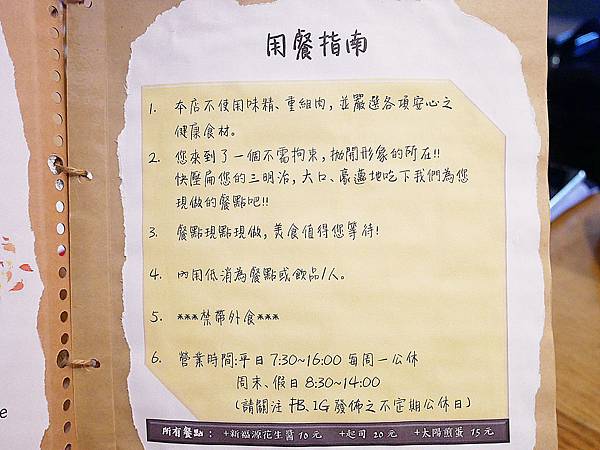 用餐指南
1. 本店不使用味精、重組肉, 並嚴選各項安心之
健康食材。
2. 您來到了一個不需拘束, 拋開形象的所在!!
快壓扁您的三明治, 大口、豪邁地吃下我們為您
現做的餐點吧!!
3. 餐點現點現做, 美食值得您等待!
4. 內用低消為餐點或飲品/人。
5. ***禁帶外食***
6. 營業時間:平日 7:30~16:00 每周一公休
周末、假日 8:30~14:00
(請關注 FB、IG 發佈之不定期公休日)
所有餐點： +新福源花生醬 10 元 +起司 20 元 +太陽煎蛋 15 元
e